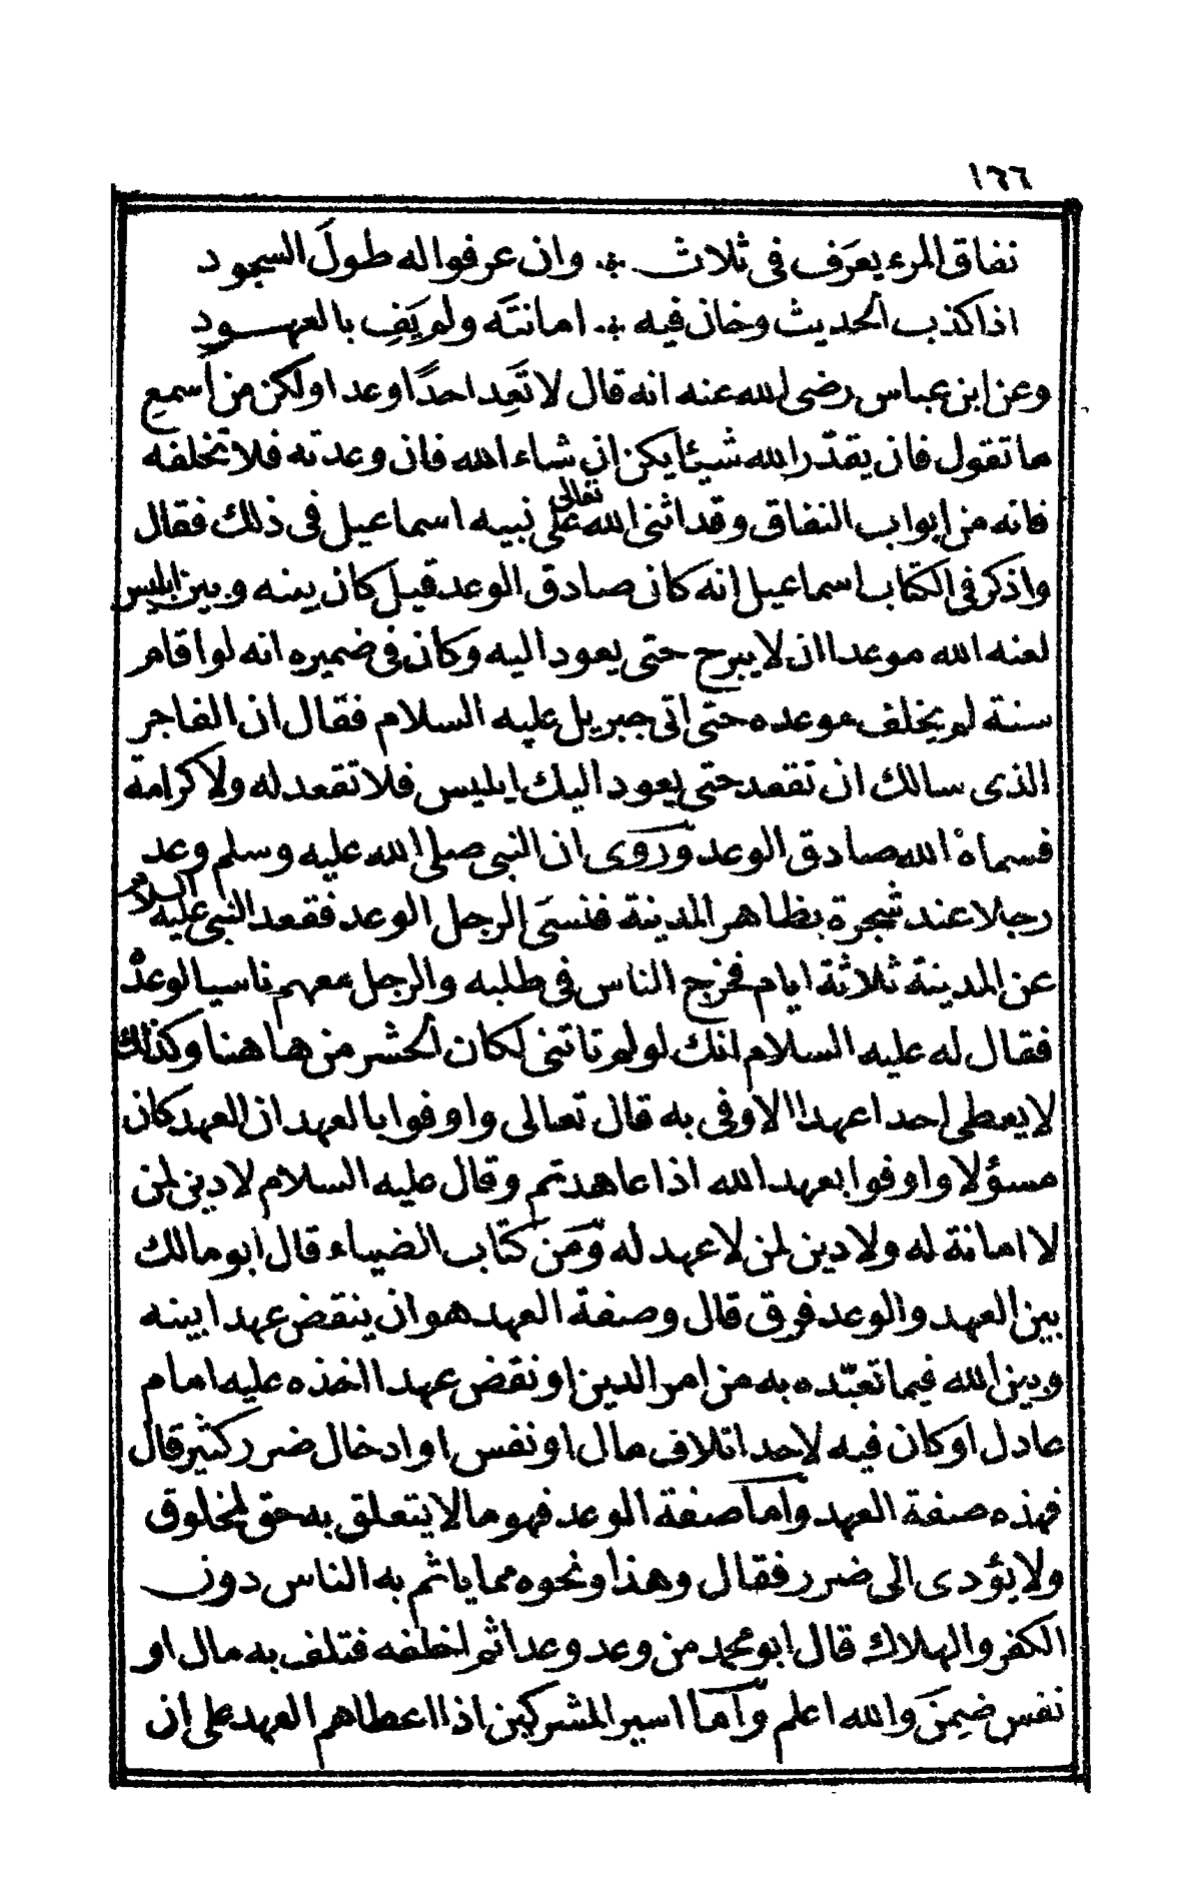 ١٦٦
نفاق المرء يعرَف فى ثلاث ∴ وان عرفوا له طولَ السجود
اذا كذب الحديث وخان فيه ∴ امانتَه ولم يَفِ بالعهود
وعن ابن عباس رضى الله عنه انه قال لا تَعِد احدًا وعدا ولكن من اسمع
ما تقول فان يقدّر الله شيئا يكن ان شاء الله فان وعدته فلا تخلفه
فانه من ابواب النفاق وقد اثنى الله تعالى على نبيه اسماعيل فى ذلك فقال
واذكر فى الكتاب اسماعيل انه كان صادق الوعد قيل كان بينه وبين ابليس
لعنه الله موعدا ان لا يبرح حتى يعود اليه وكان فى ضميره انه لو اقام
سنة لم يخلف موعده حتى اتى جبريل عليه السلام فقال ان الفاجر
الذى سالك ان تقعد حتى يعود اليك ابليس فلا تقعد له ولا كرامة
فسماه الله صادق الوعد وروى ان النبى صلى الله عليه وسلم وعد
رجلا عند شجرة بظاهر المدينة فنسىَ الرجل الوعد فقعد النبى عليه السلام
عن المدينة ثلاثة ايام فخرج الناس فى طلبه والرجل معهم ناسيا لوعده
فقال له عليه السلام انك لو لم تاتنى لكان الحشر من هاهنا وكذلك
لا يعطى احدا عهدا الا وفى به قال تعالى واوفوا بالعهد ان العهد كان
مسؤلا واوفوا بعهد الله اذا عاهدتم وقال عليه السلام لا دين لمن
لا امانة له ولا دين لمن لا عهد له ومن كتاب الضياء قال ابو مالك
بين العهد والوعد فرق قال وصفة العهد هو ان ينقض عهدا بينه
وبين الله فيما تعبّده به من امر الدين او نقض عهدا اتخذه عليه امام
عادل او كان فيه لاحد اتلاف مال او نفس او ادخال ضرر كثير قال
فهذه صفة العهد واما صفة الوعد فهو ما لا يتعلق به حق لمخلوق
ولا يؤدى الى ضرر فقال وهذا ونحوه مما ياثم به الناس دون
الكفر والهلاك قال ابو محمد من وعد وعدا ثم اخلفه فتلف به مال او
نفس ضيمنَ والله اعلم واما اسير المشركين اذا اعطاهم العهد على ان